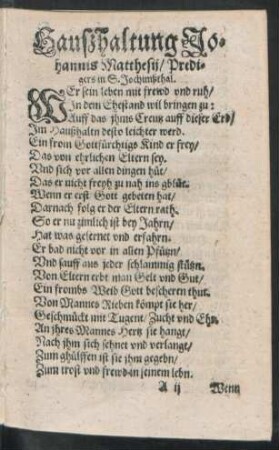 Haußhaltung Jo-
hannis Matthesij/ Predi-
gers in S. Jochimßthal.
WEr sein leben mit frewd vnd ruh/
In dem Ehestand wil bringen zu:
Auff das jhms Creutz auff dieser Erd/
Im Haußhaltn desto leichter werd.
Ein from Gottfürchtigs Kind er frey/
Das von ehrlichen Eltern sey.
Vnd sich vor allen dingen hüt/
Das er nicht freyh zu nah ins gblüt.
Wenn er erst Gott gebeten hat/
Darnach folg er der Eltern rath.
So er nu zimlich ist bey Jahrn/
Hat was gelernet vnd erfahrn.
Er bad nicht vor in allen Pfützn/
Vnd sauff aus jeder schlammig
Von Eltern erbt man Gelt vnd Gut/
Ein frombs Weib Gott bescheren thut.
Von Mannes Rieben kömpt sie her/
Geschmückt mit Tugent/ Zucht vnd Ehr.
An jhres Mannes Hertz sie hangt/
Nach jhm sich sehnet vnd verlangt/
Zum ghülffen ist sie jhm gegebn/
Zum trost vnd frewd in seinem lebn.
A ij Wenn